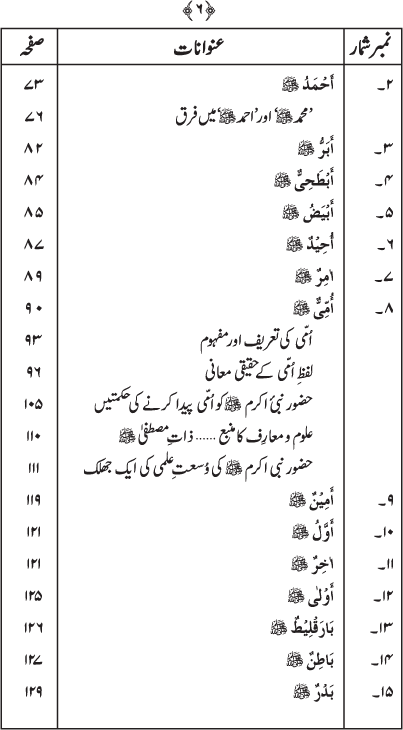 ﴿۶﴾
نمبر شمار عنوانات صفحہ
۲۔ أَحْمَدُ ﷺ ۷۳
’محمد ﷺ‘ اور ’احمد ﷺ‘ میں فرق ۷۶
۳۔ أَبَرُّ ﷺ ۸۲
۴۔ أَبْطَحِيٌّ ﷺ ۸۴
۵۔ أَبْيَضُ ﷺ ۸۵
۶۔ أُحِيْدٌ ﷺ ۸۷
۷۔ اٰمِرٌ ﷺ ۸۹
۸۔ أُمِّيٌّ ﷺ ۹۰
اُمّی کی تعریف اور مفہوم ۹۳
لفظِ اُمّی کے حقیقی معانی ۹۶
حضور نبی اکرم ﷺ کو اُمّی پیدا کرنے کی حکمتیں ۱۰۵
علوم و معارف کا منبع ...... ذاتِ مصطفیٰ ﷺ ۱۱۰
حضور نبی اکرم ﷺ کی وُسعتِ علمی کی ایک جھلک ۱۱۱
۹۔ أَمِيْنٌ ﷺ ۱۱۹
۱۰۔ أَوَّلُ ﷺ ۱۲۱
۱۱۔ اٰخِرٌ ﷺ ۱۲۱
۱۲۔ أَوْلٰى ﷺ ۱۲۵
۱۳۔ بَارَقْلِيْطٌ ﷺ ۱۲۶
۱۴۔ بَاطِنٌ ﷺ ۱۲۷
۱۵۔ بَدْرٌ ﷺ ۱۲۹